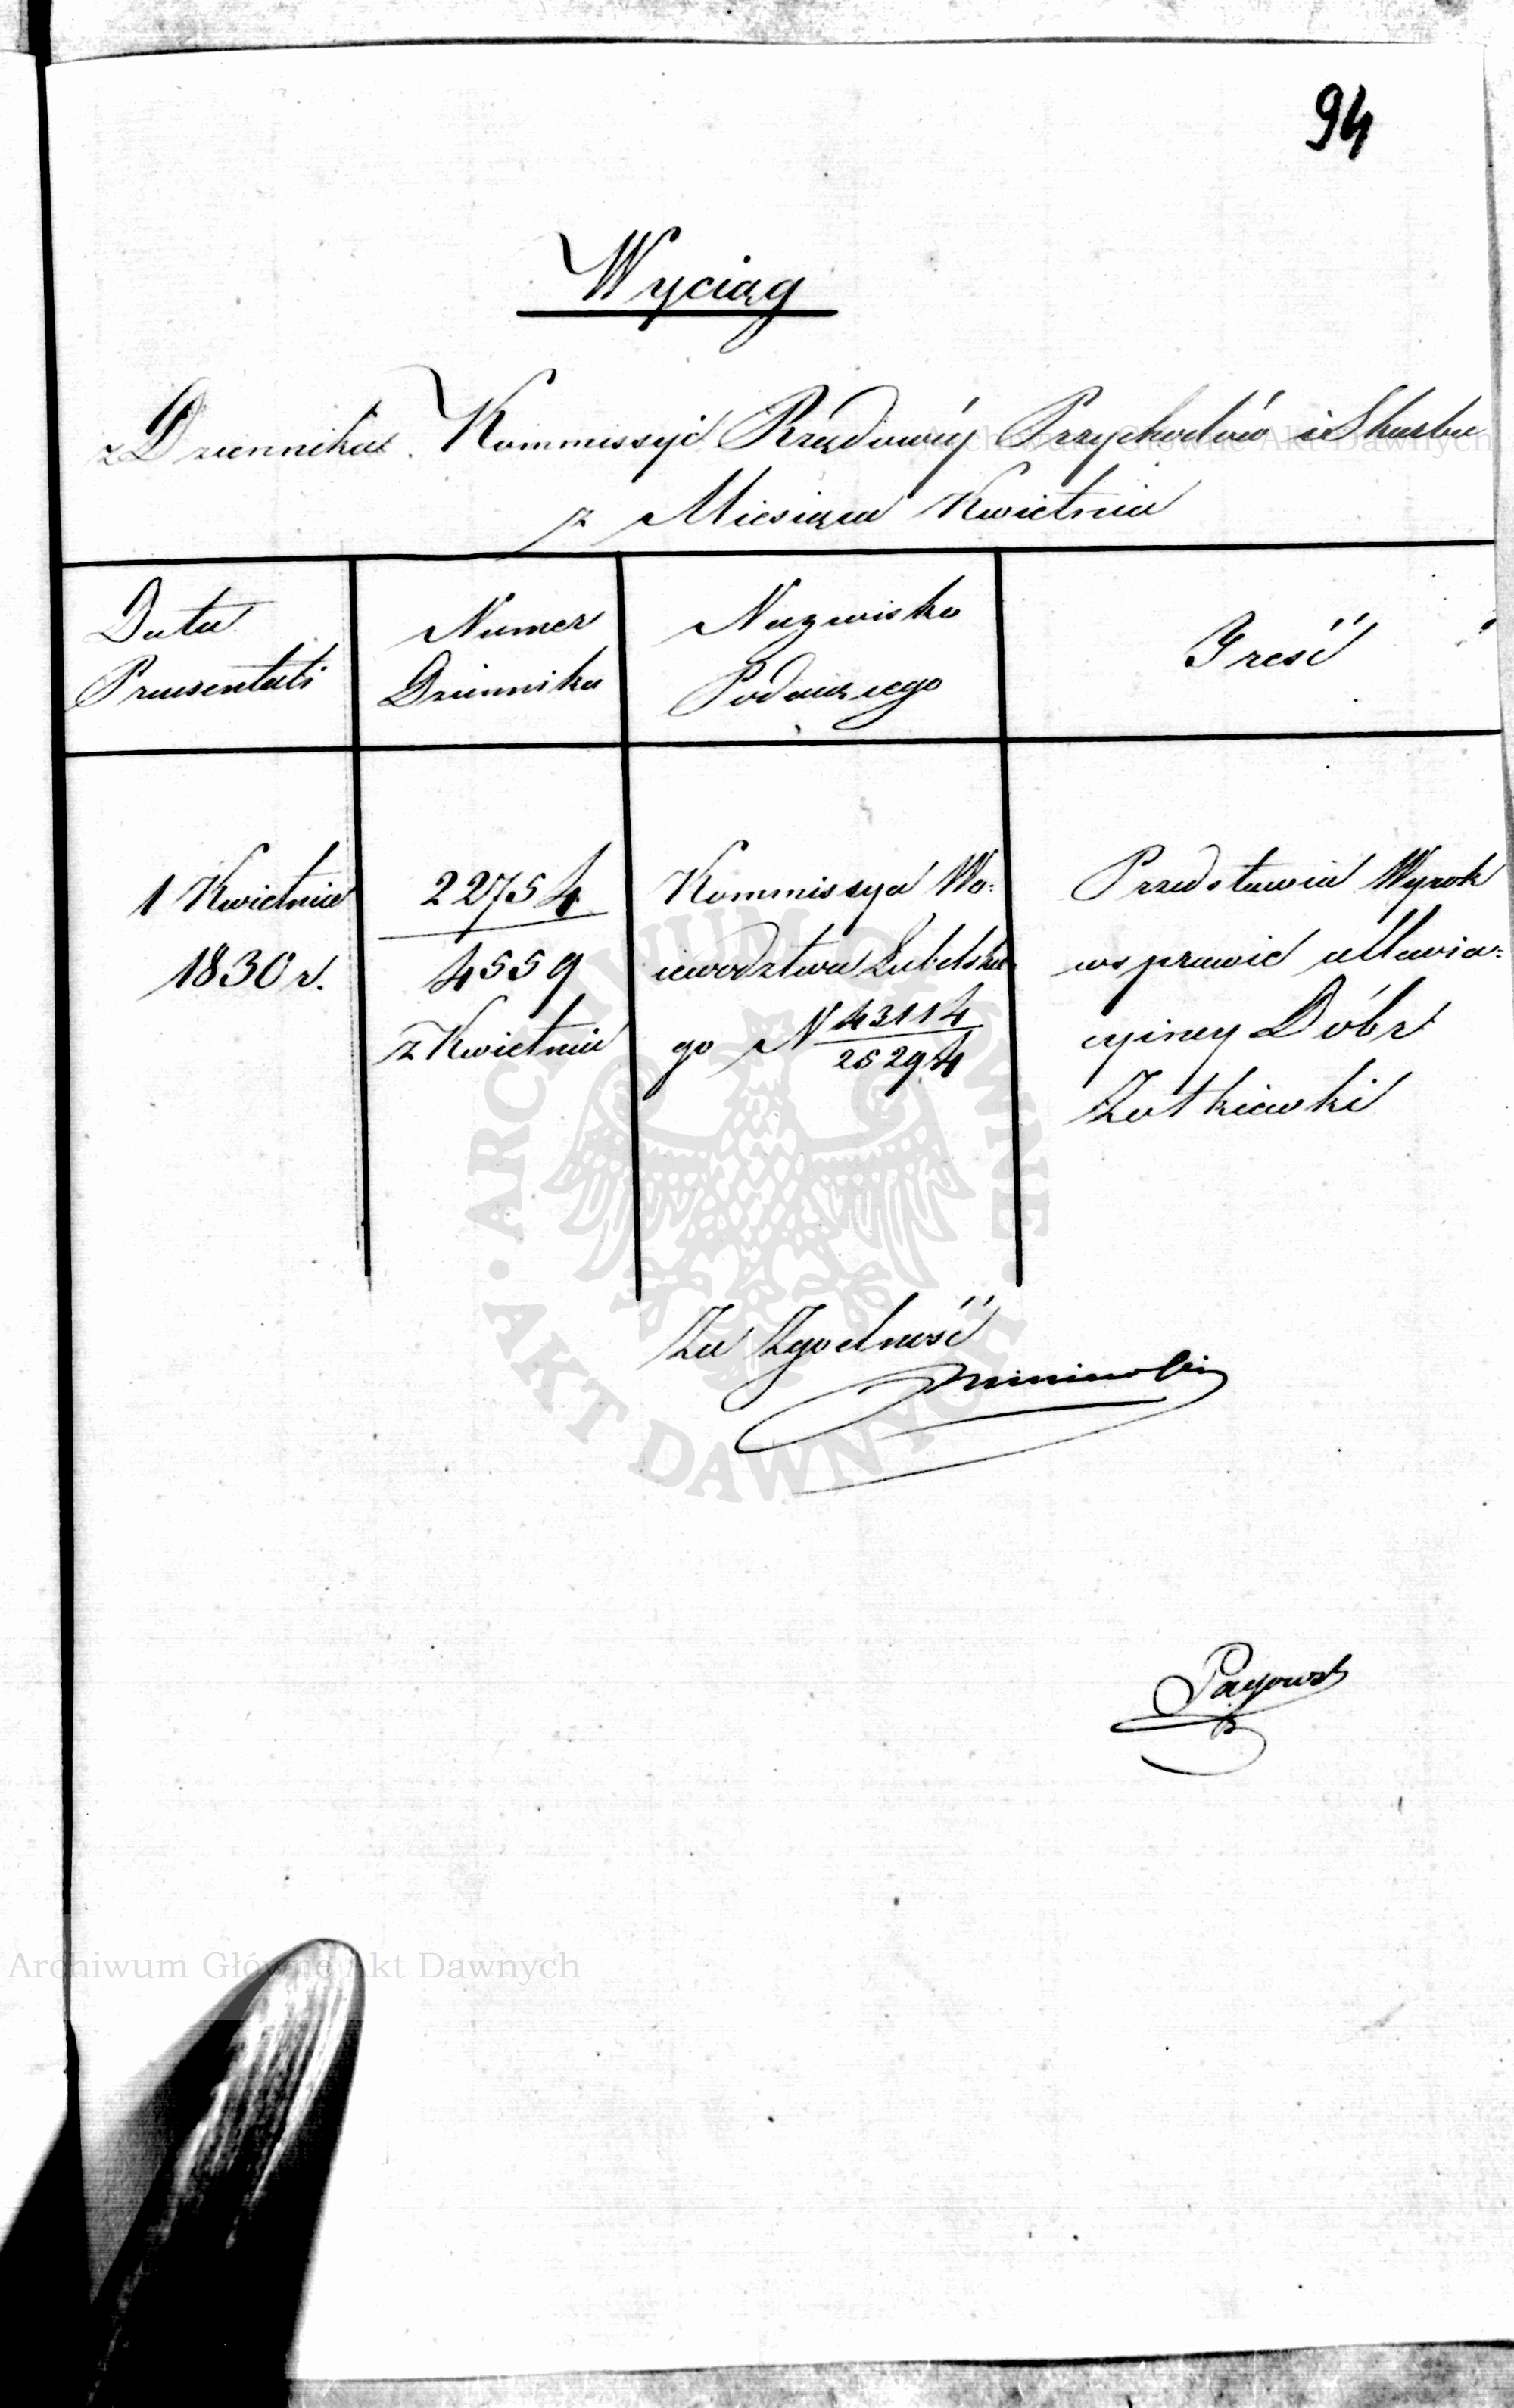 94
Wyciąg
z Dziennika Kommissyi Rządowéy Przychodów i Skarbu
z Miesiąca Kwietnia
Data
Praesentati
Numer
Dziennika
Nazwisko
Podaiącego
Treść
1 Kwietnia
1830 r.
22754
4559
z Kwietnia
Kommissya Wo=
iewodztwa Lubelskie
go N 43114
26294
Przedstawia Wyrok
w sprawie
cyiney Dóbr
Żołkiewki
Za Zgodność
ARCHIWUM GŁÓWNE AKT DAWNYCH
Archiwum Główne Akt Dawnych
Archiwum Główne Akt Dawnych